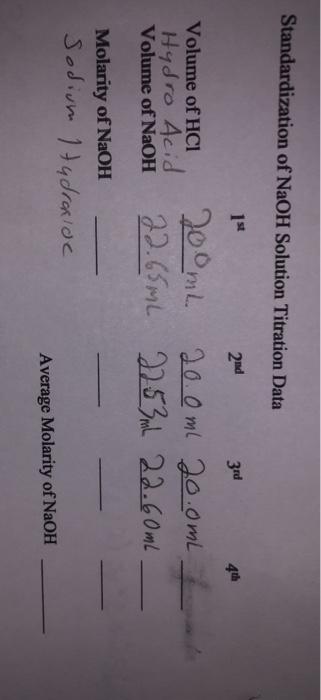 Standardization of NaOH Solution Titration Data
1st 2nd 3rd 4th
Volume of HCl 20.0mL 20.0ml 20.0mL
Hydro Acid
Volume of NaOH 22.65mL 22.53mL 22.60mL
Molarity of NaOH
Sodium Hydroxide
Average Molarity of NaOH